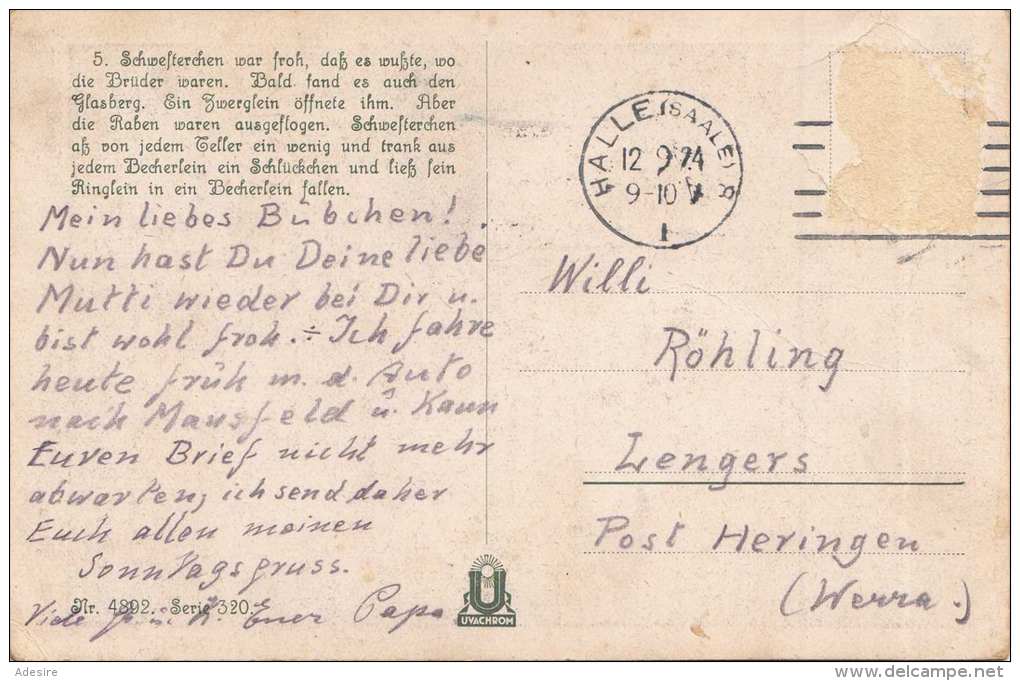 5. Schwesterchen war froh, daß es wußte, wo
die Brüder waren. Bald fand es auch den
Glasberg. Ein Zwerglein öffnete ihm. Aber
die Raben waren ausgeflogen. Schwesterchen
aß von jedem Teller ein wenig und trank aus
jedem Becherlein ein Schlückchen und ließ sein
Ringlein in ein Becherlein fallen.
Mein liebes Bübchen!
Nun hast Du Deine liebe
Mutti wieder bei Dir u.
bist wohl froh. ÷ Ich fahre
heute früh m. d. Auto
nach Mansfeld u. kann
Euren Brief nicht mehr
abwarten, ich send daher
Euch allen meinen
Sonntagsgruss.
Viele Gr. u. K. Euer Papa
Nr. 4892. Serie 320.
UVACHROM
HALLE (SAALE)
12 9 24
9-10 V
1
Willi
Röhling
Lengers
Post Heringen
(Werra.)
Adesire
delcampe.net